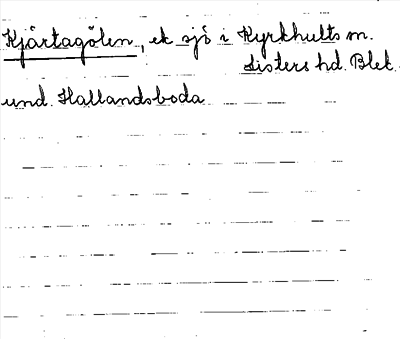 Kjärtagölen, ek sjö i Kyrkhults sn.
Listers hd. Blek.
und. Hallandsboda